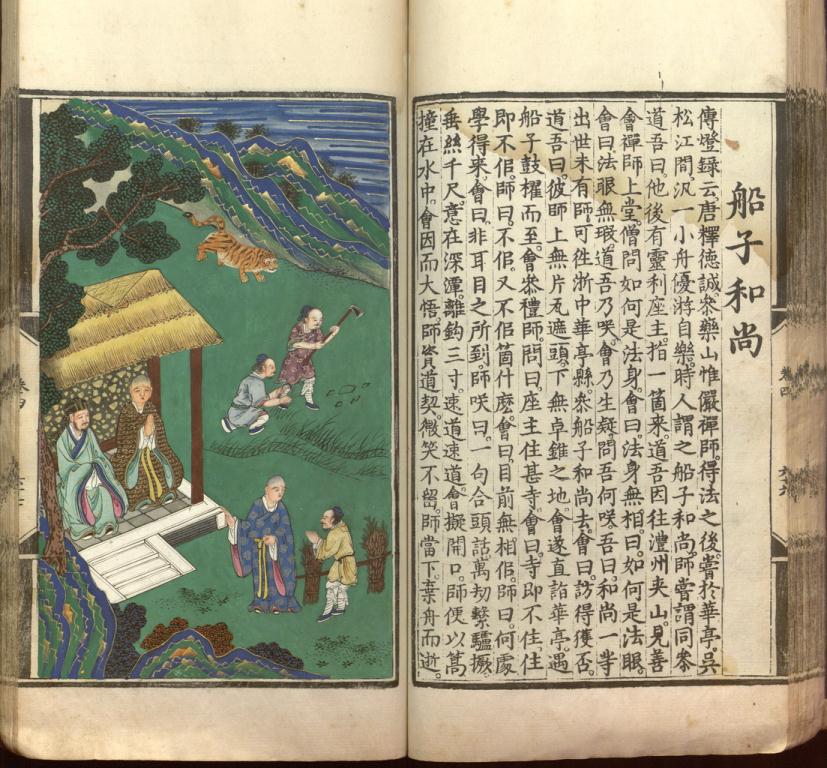 船子和尚
傳燈錄云唐釋德誠叅藥山惟儼禪師。得法之後。嘗於華亭。吳
松江間汎一小舟優游自樂。時人謂之船子和尚。師嘗謂同叅
道吾曰。他後有靈利座主。指一箇来。道吾因往澧州夹山。見善
會禪師上堂。僧問如何是法身。會曰。法身無相。曰。如何是法眼。
會曰。法眼無瑕。道吾乃咲。會乃生疑問吾何咲。吾曰。和尚一等
出世未有師。可徃浙中華亭縣。叅船子和尚去。會曰。訪得獲否。
道吾曰。彼師上無片瓦遮頭。下無卓錐之地。會遂直詣華亭。遇
船子鼓櫂而至。會叅禮師。問曰。座主住甚寺。會曰。寺即不住。住
即不佀。師曰。不佀。又不佀箇什麽。會曰。目前無相佀。師曰。何處
學得来。會曰。非耳目之所到。師咲曰。一句合頭話。萬劫繫驢橛。
垂絲千尺。意在深潭。離鈎三寸。速道速道。會擬開口。師便以篙
撞在水中。會因而大悟。師資道契。微笑不留。師當下棄舟而逝。
卷四